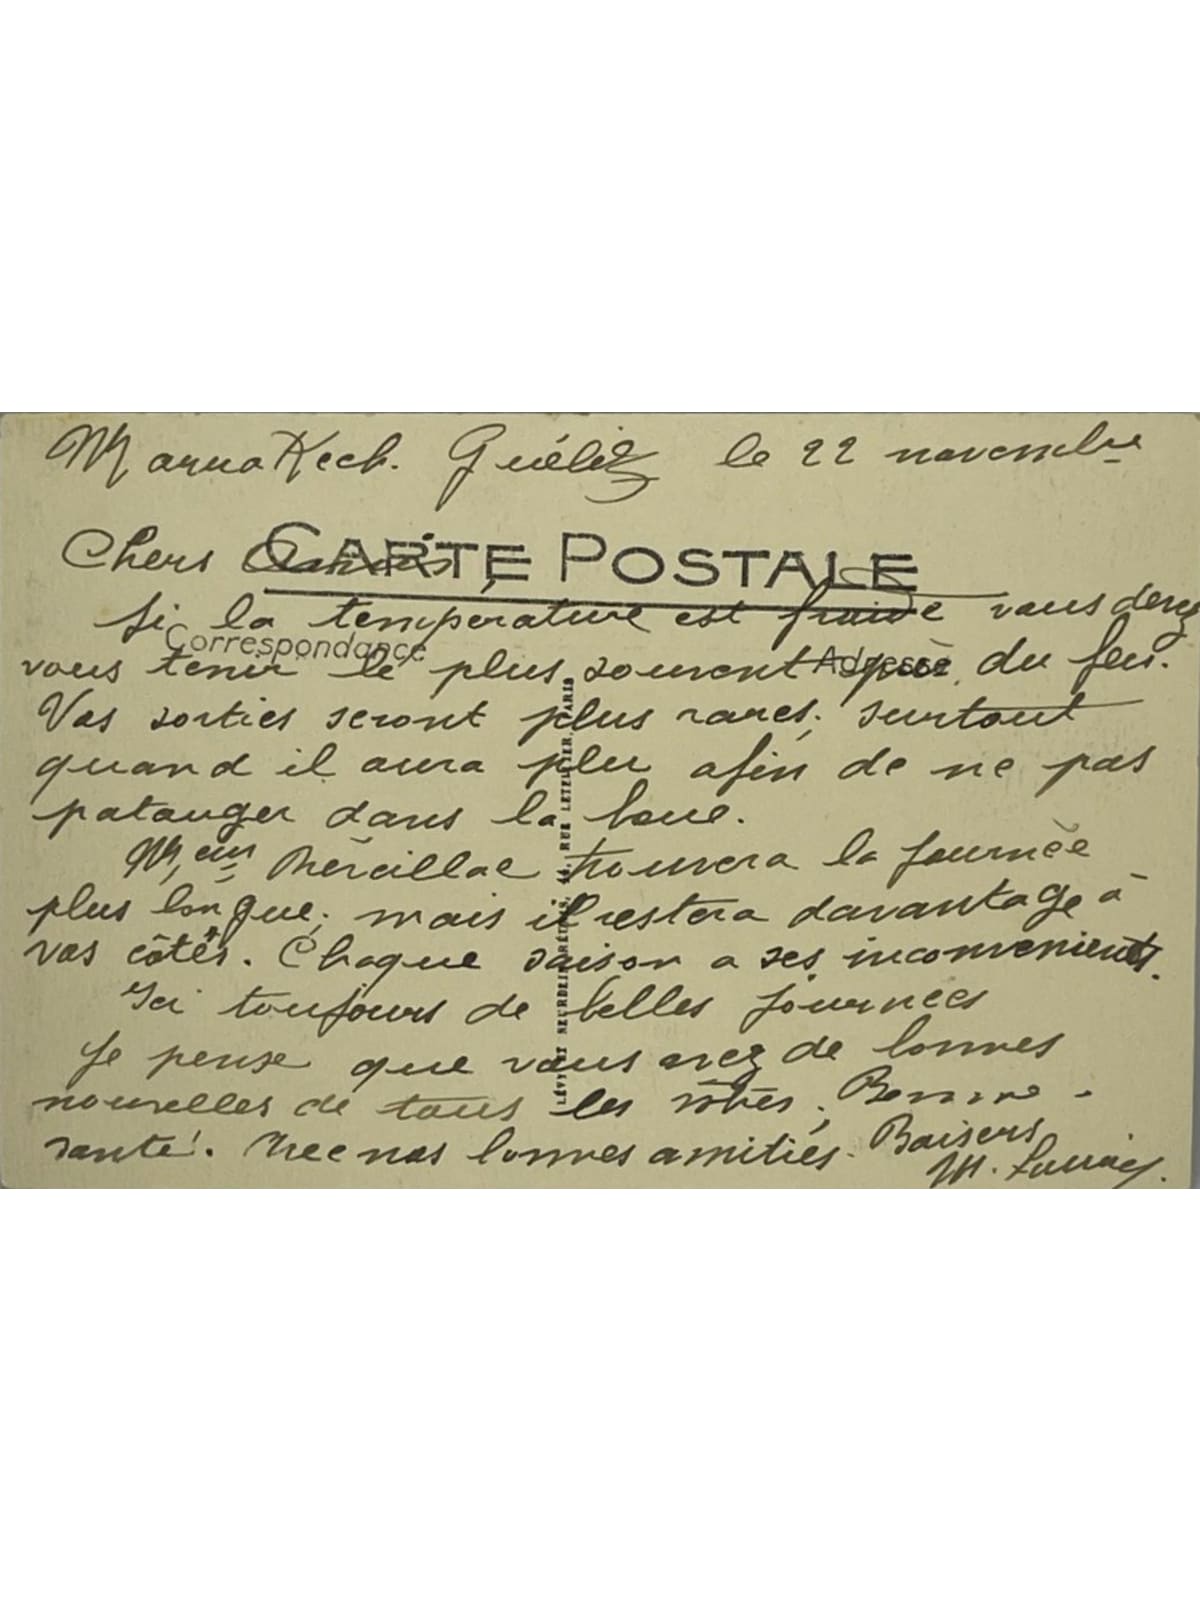 MarraKech. Guéliz le 22 novembre
CARTE POSTALE
Chers Amis
Si la temperature est froide vous devez
Correspondance
Adresse
vous tenir le plus souvent près du feu.
Vos sorties seront plus rares, surtout
quand il aura plu afin de ne pas
patauger dans la boue.
M,eur trouvera la journèe
plus longue, mais il restera davantage à
vos côtés. Chaque saison a ses inconvenients.
Ici toujours de belles journées
Je pense que vous avez de bonnes
nouvelles de tous les vôtres, Bonne
santé. Avec nos bonnes amitiés. Baisers
M.
LÉVY ET NEURDEIN RÉUNIS, 44, RUE LETELLIER, PARIS